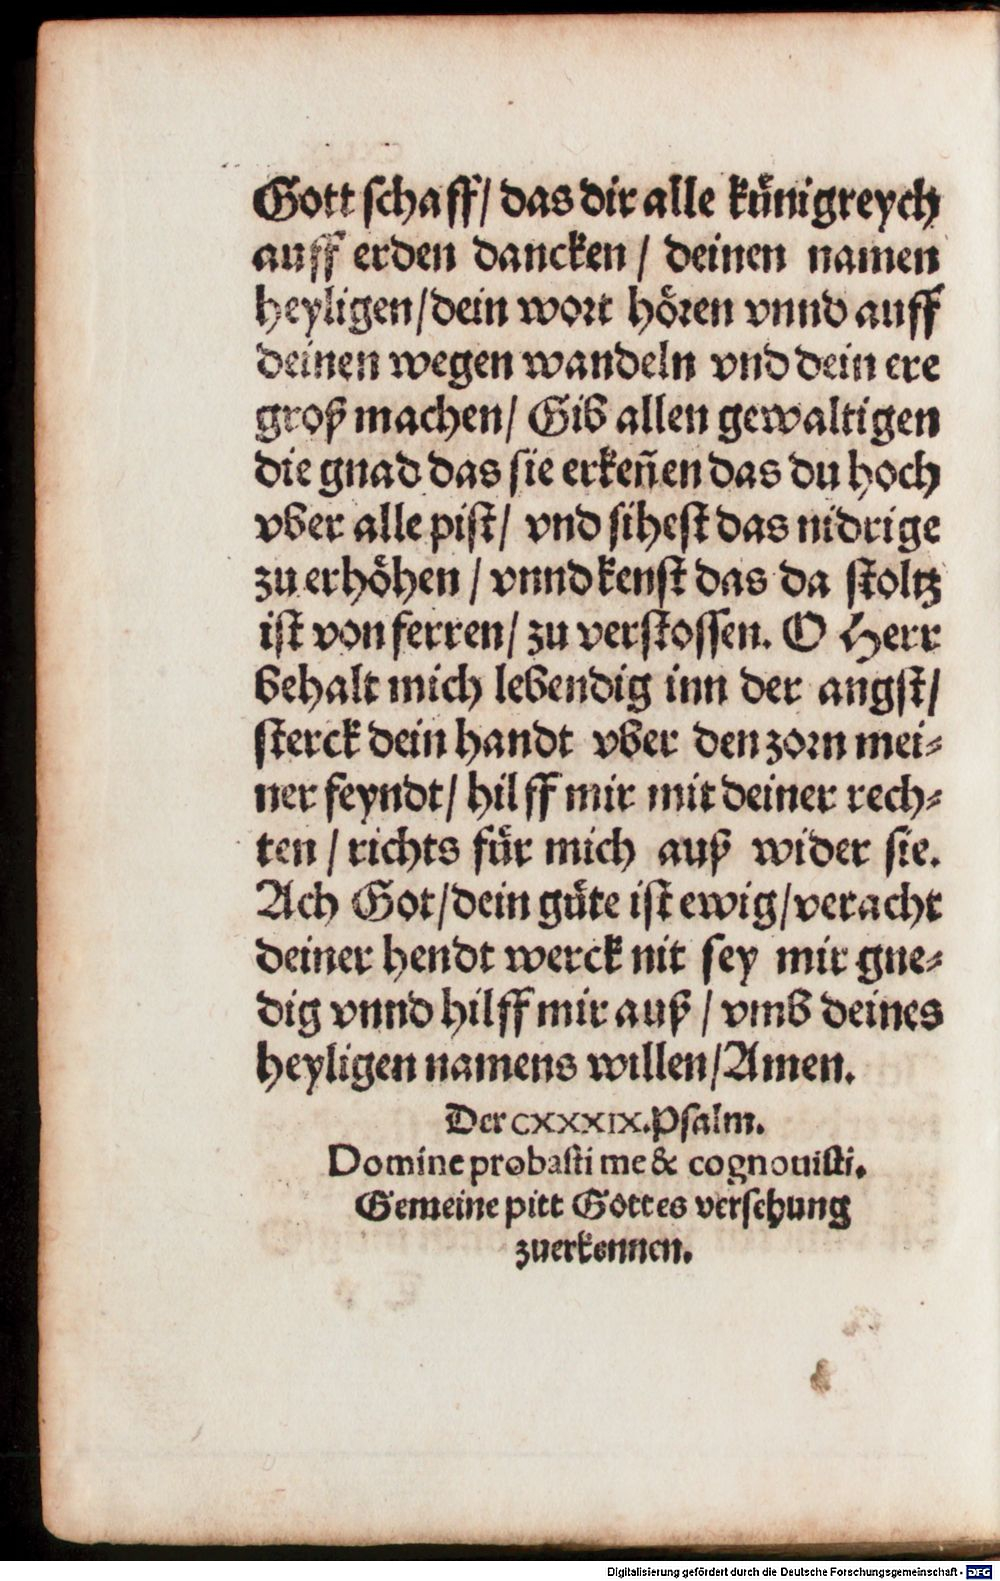 Gott schaff/ das dir alle künigreych
auff erden dancken / deinen namen
heyligen/dein wort hören vnnd auff
deinen wegen wandeln vnd dein ere
groß machen/ Gib allen gewaltigen
die gnad das sie erkeñen das du hoch
vber alle pist/ vnd sihest das nidrige
zu erhöhen / vnnd kenst das da stoltz
ist von ferren/ zu verstossen. O Herr
behalt mich lebendig inn der angst/
sterck dein handt vber den zorn mei⸗
ner feyndt/ hilff mir mit deiner rech⸗
ten / richts für mich auß wider sie.
Ach Got/dein güte ist ewig/veracht
deiner hendt werck nit sey mir gne⸗
dig vnnd hilff mir auß / vmb deines
heyligen namens willen/Amen.
Der CXXXIX.Psalm.
Domine probasti me & cognouisti.
Gemeine pitt Gottes versehung
zuerkennen.
Digitalisierung gefördert durch die Deutsche Forschungsgemeinschaft - DFG